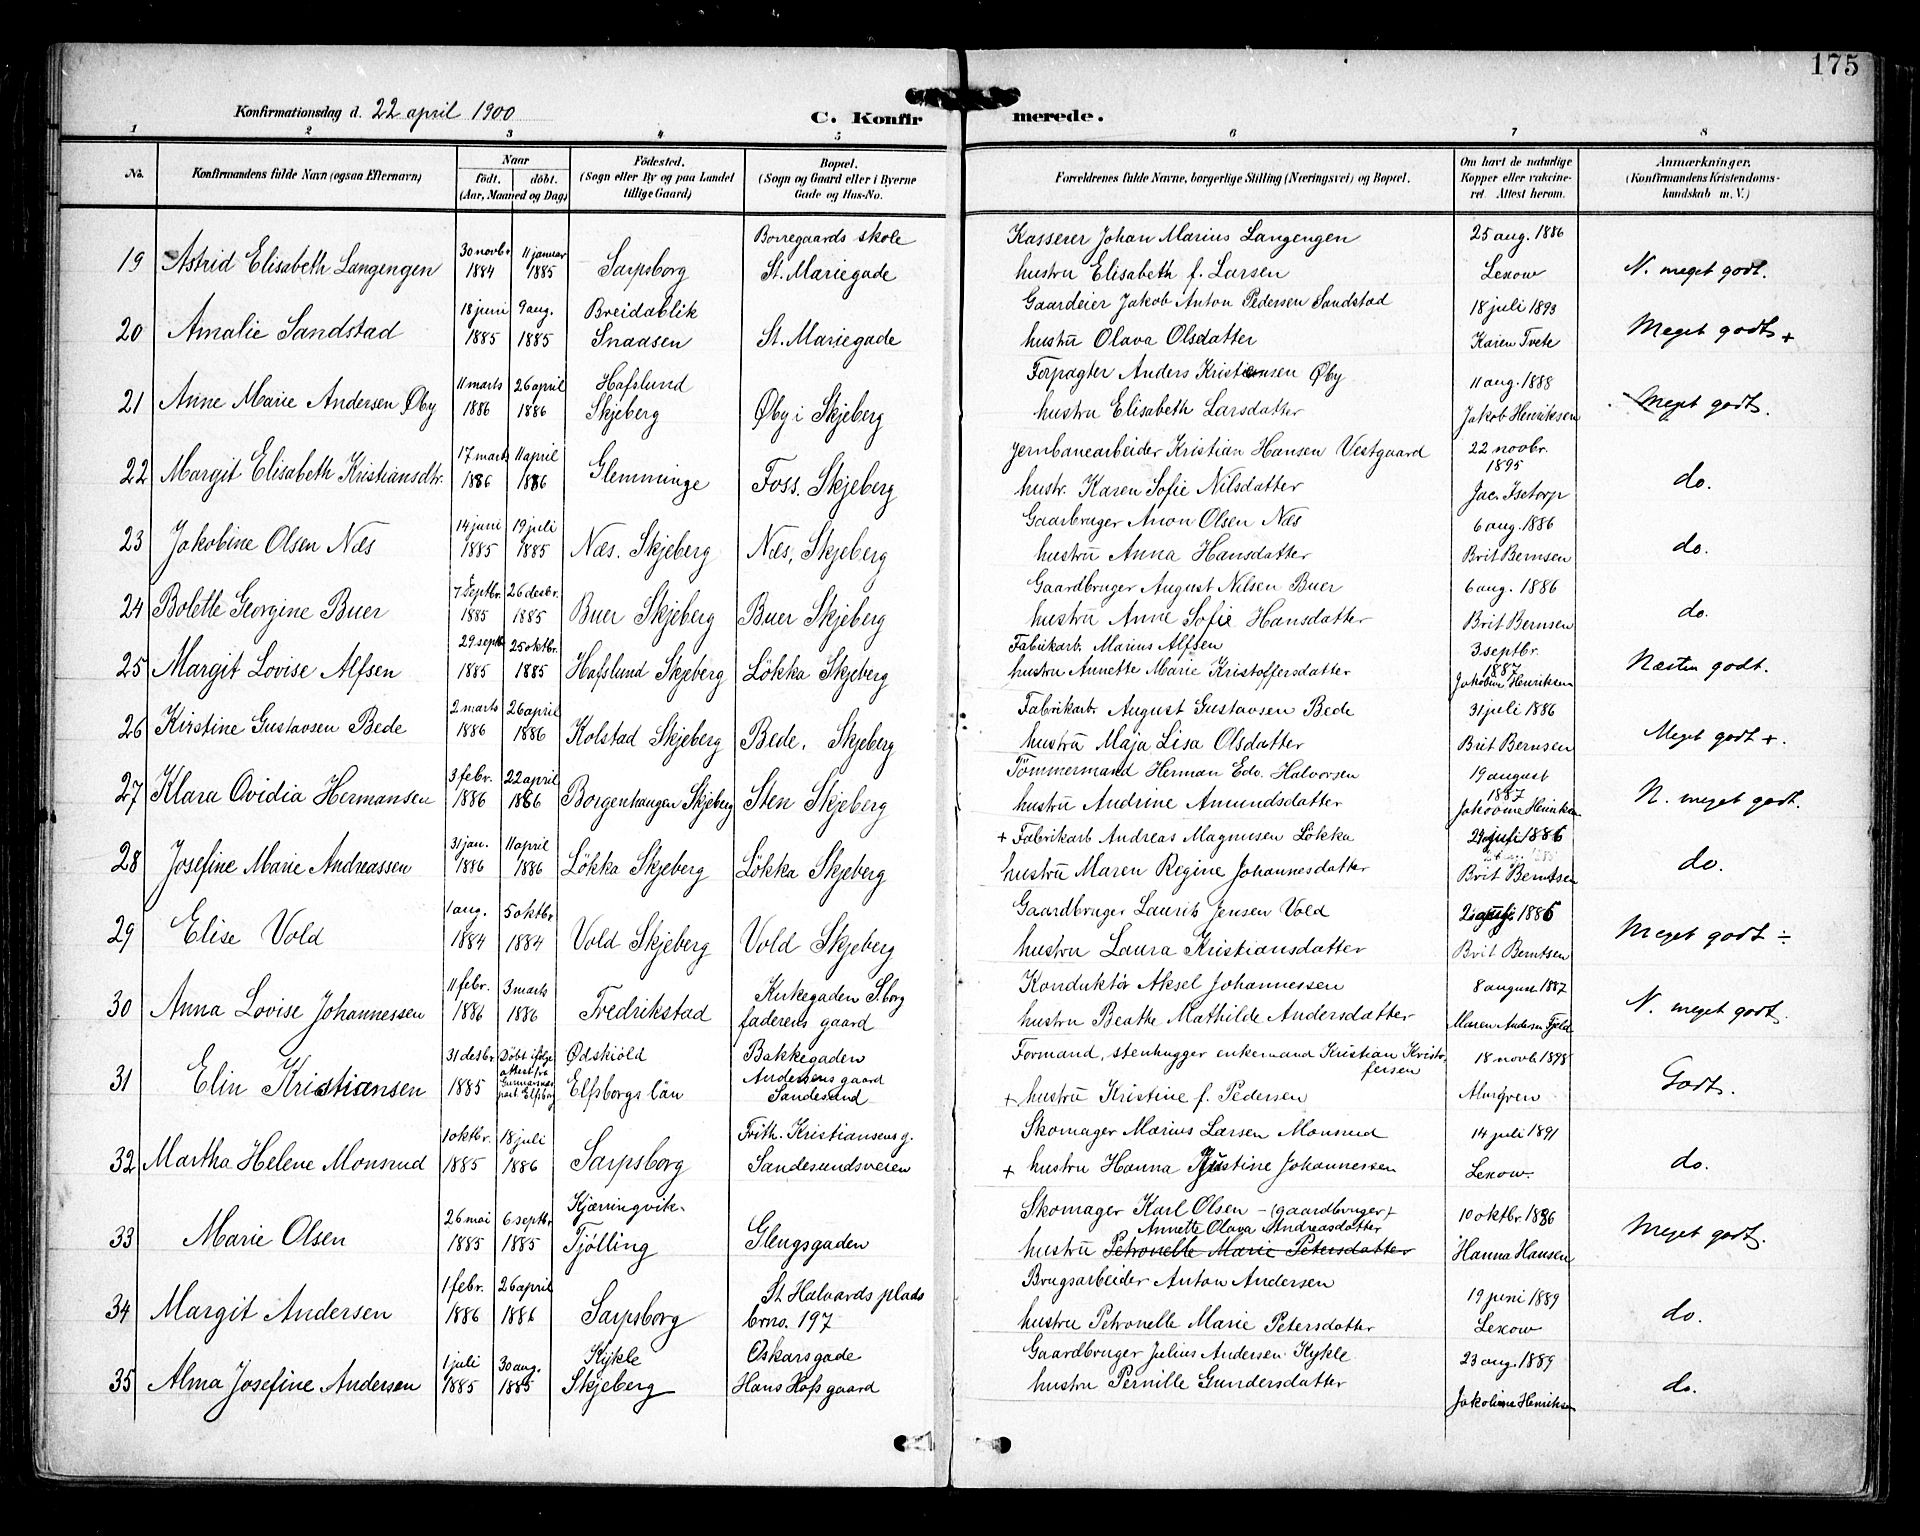 175
Konfirmationsdag d. 22 april 1900
C. Konfirmerede.
1 2 3 4 5 6 7 8
No. Konfirmandens fulde Navn (ogsaa Efternavn) Naar født. døbt. (Aar, Maaned og Dag) Fødested. (Sogn eller By og paa Landet tillige Gaard) Bopæl. (Sogn og Gaard eller i Byerne Gade og Hus-No. Forældrenes fulde Navne, borgerlige Stilling (Næringsvei) og Bopæl. Om havt de naturlige Kopper eller vakcineret. Attest herom. Anmærkninger. (Konfirmandens Kristendomskundskab m. V.)
19 Astrid Elisabeth Langengen 30 novbr 1884 11 januar 1885 Sarpsborg Borregaards skole St. Mariegade Kasserer Johan Marius Langengen hustru Elisabeth f. Larsen 25 aug. 1886 Lexow N. meget godt.
20 Amalie Sandstad 18 juni 1885 9 aug. 1885 Breidablik Snaasen St. Mariegade Gaardeier Jakob Anton Pedersen Sandstad hustru Olava Olsdatter 18 juli 1893 Karen Tvete Meget godt +
21 Anne Marie Andersen Øby 11 marts 1886 26 april 1886 Hafslund Skjeberg Øby i Skjeberg Forpagter Anders Kristiansen Øby hustru Elisabeth Larsdatter 11 aug. 1888 Jakob Henriksen Meget godt.
22 Margit Elisabeth Kristiansdtr. 17 marts 1886 11 april 1886 Glemminge Foss. Skjeberg Jernbanearbeider Kristian Hansen Vestgaard hustr. Karen Sofie Nilsdatter 22 novbr. 1895 Jac. Isetorp do.
23 Jakobine Olsen Næs 14 juni 1885 19 juli 1885 Næs. Skjeberg Næs, Skjeberg Gaarbruger Anon Olsen Næs hustru Anna Hansdatter 6 aug. 1886 Brit Bernsen do.
24 Bolette Georgine Buer 7 septbr. 1885 26 desbr. 1885 Buer Skjeberg Buer Skjeberg Gaardbruger August Nilsen Buer hustru Anne Sofie Hansdatter 6 aug. 1886 Brit Bernsen do.
25 Margit Lovise Alfsen 29 septb 1885 25 oktbr. 1885 Hafslund Skjeberg Løkka Skjeberg Fabrikarb. Marius Alfsen hustru Annette Marie Kristoffersdatter 3 septbr. 1887 Jakobine Henriksen Næsten godt.
26 Kirstine Gustavsen Bede 2 marts 1886 26 april 1886 Kolstad Skjeberg Bede, Skjeberg Fabrikarb. August Gustavsen Bede hustru Maja Lisa Olsdatter 31 juli 1886 Brit Bernsen Meget godt +.
27 Klara Ovidia Hermansen 3 febr. 1886 22 april 1886 Borgenhaugen Skjeberg Sten Skjeberg Tømmermand Herman Edv. Halvorsen hustru Andrine Amundsdatter 19 august 1887 N. meget godt.
28 Josefine Marie Andreassen 31 jan. 1886 11 april 1886 Løkka Skjeberg Løkka Skjeberg + Fabrikarb Andreas Magnusen Løkka hustru Maren Regine Johannesdatter 29 juli 1886 Brit Berntsen do.
29 Elise Vold 1 aug. 1884 5 oktbr 1884 Vold Skjeberg Vold Skjeberg Gaardbruger Laurits Jensen Vold hustru Laura Kristiansdatter 1886 Brit Berntsen Meget godt ÷
30 Anna Lovise Johannessen 11 febr. 1886 3 marts 1886 Fredrikstad Kirkegaden S.borg faderens gaard Konduktør Aksel Johannessen hustru Beathe Mathilde Andersdatter 8 august 1887 Maren Andersen Fjeld N. meget godt.
31 Elin Kristiansen 31 desbr 1885 Døbt ifølge attest fra Elfsborg Ødskiöld Elfsborgs län Bakkegaden Andersens gaard Sandesund Formand, stenhugger enkemand Kristian Kristoffersen + hustru Kristine f. Pedersen 18 novb. 1898 Almgren Godt.
32 Martha Helene Monsrud 1 oktbr. 1885 18 juli 1886 Sarpsborg Frith. Kristiansens g. Sandesundsveien Skomager Marius Larsen Monsrud + hustru Hanna Justine Johannessen 14 juli 1891 Lexow. do.
33 Marie Olsen 26 mai 1885 6 septbr 1885 Kjærringvik. Tjølling Glengsgaden Skomager Karl Olsen - (gaardbruger) + hustru Annette Olava Andreasdatter Petronelle Marie Petersdatter 10 oktbr. 1886 Hanna Hansen Meget godt.
34 Margit Andersen 1 febr. 1886 26 april 1886 Sarpsborg St. Halvards plads brno. 197 Brugsarbeider Anton Andersen hustru Petronelle Marie Petersdatter 19 juni 1889 Lexow do.
35 Alma Josefine Andersen 1 juli 1885 30 aug. 1885 Kykle Skjeberg Oskarsgade Hans Hofs gaard Gaardbruger Julius Andersen Kykle hustru Pernille Gundersdatter 23 aug. 1889 Jakobine Henriksen do.